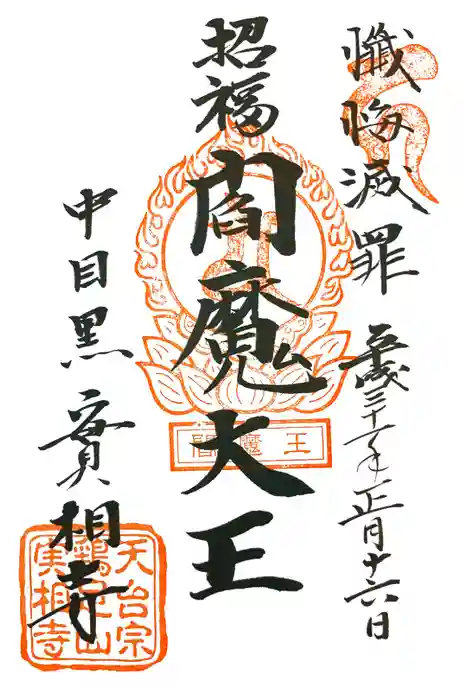 懺悔滅罪
平成三十一年正月十六日
招福
閻魔大王
王魔閻
中目黒 實相寺
天台宗
鷄足山
実相寺